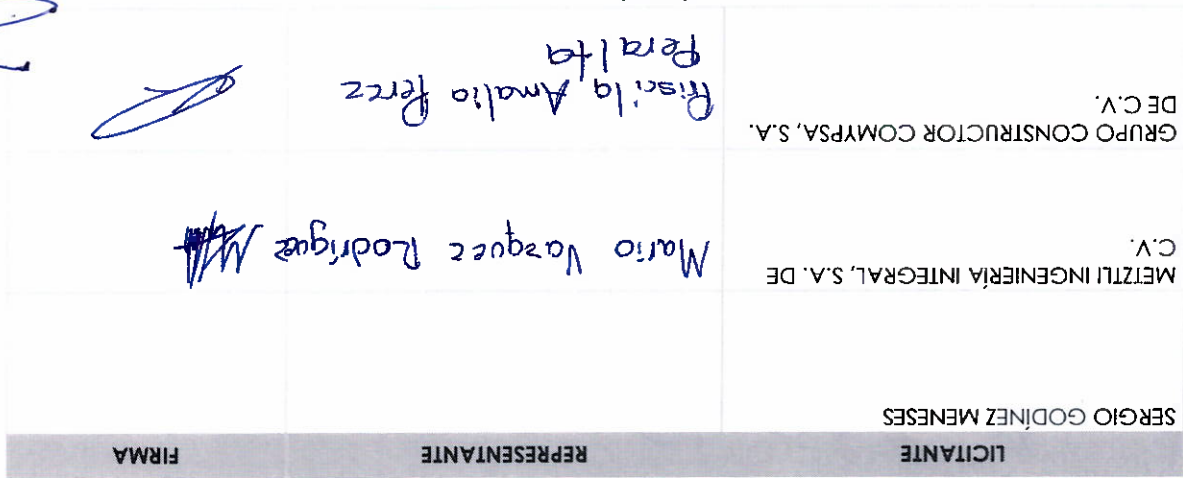 LICITANTE REPRESENTANTE FIRMA
SERGIO GODÍNEZ MENESES
METZTLI INGENIERÍA INTEGRAL, S.A. DE
C.V.
Mario Vazquez Rodríguez
GRUPO CONSTRUCTOR COMYPSA, S.A.
DE C.V.
Priscila Amalia Perez
Peralta